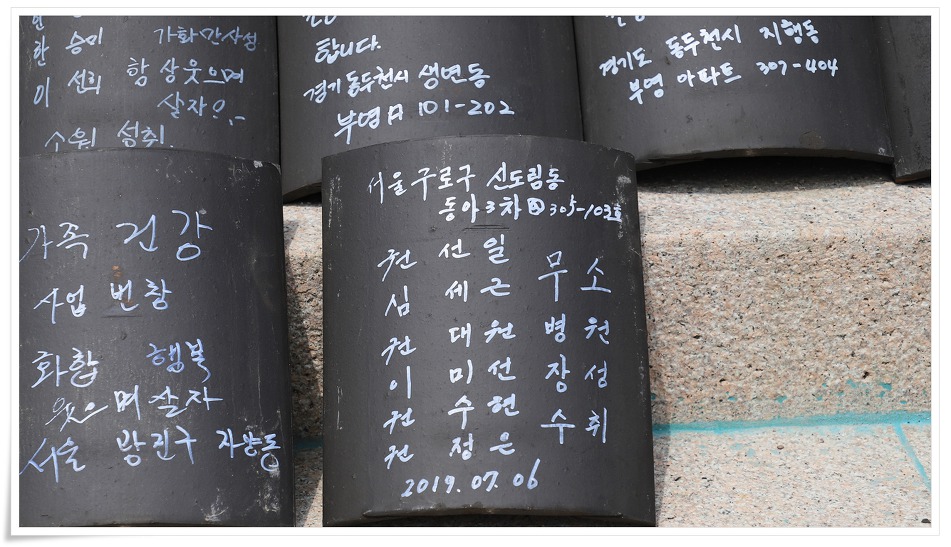 한 승미 가화만사성
이 선희 항상웃으며
살자 ?.~
소원 성취.
합니다.
경기 동두천시 생연동
부영A 101-202
경기도 동두천시 지행동
부영 아파트 307-404
가족 건강
사업 번창
화합 행복
웃으며 살자
서울 광진구 자양동
서울 구로구 신도림동
동아3차 305-103호
권 선 일
심 세 근
권 대 원
이 미 선
권 수 현
권 정 은
무 소
병 원
장 성
수 취
2019.07.06